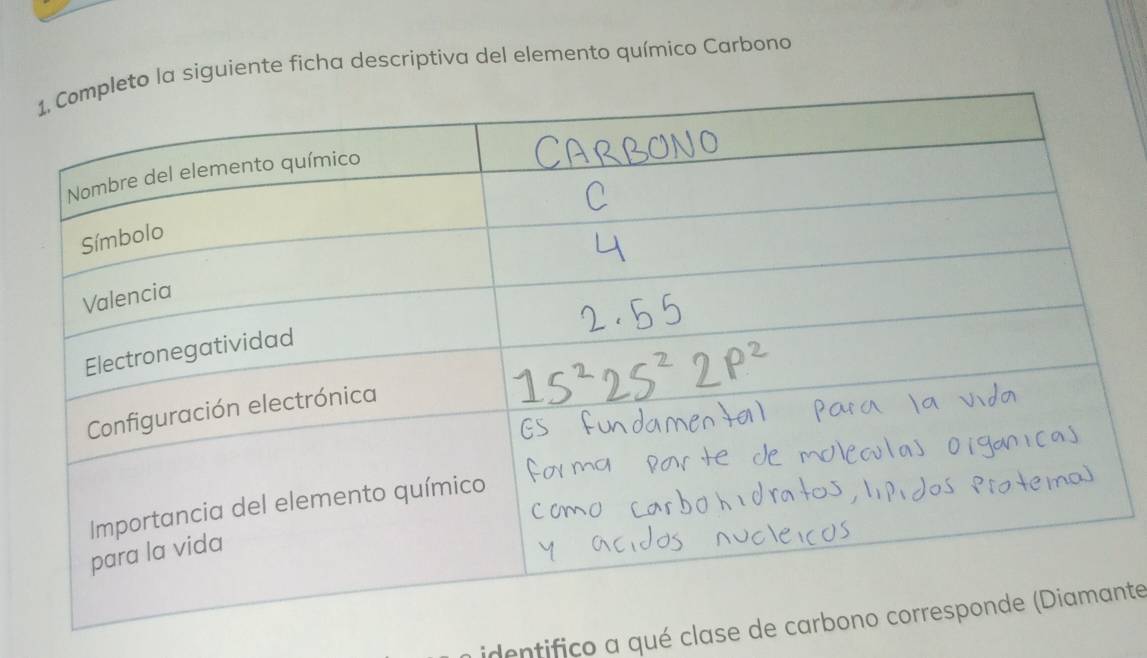 1. Completo la siguiente ficha descriptiva del elemento químico Carbono
Nombre del elemento químico CARBONO
Símbolo C
Valencia 4
Electronegatividad 2.55
Configuración electrónica 1S² 2S² 2P²
Importancia del elemento químico
para la vida
Es fundamental para la vida
forma parte de moleculas organicas
como carbohidratos, lipidos proteinas
y acidos nucleicos
identifico a qué clase de carbono corresponde (Diamante